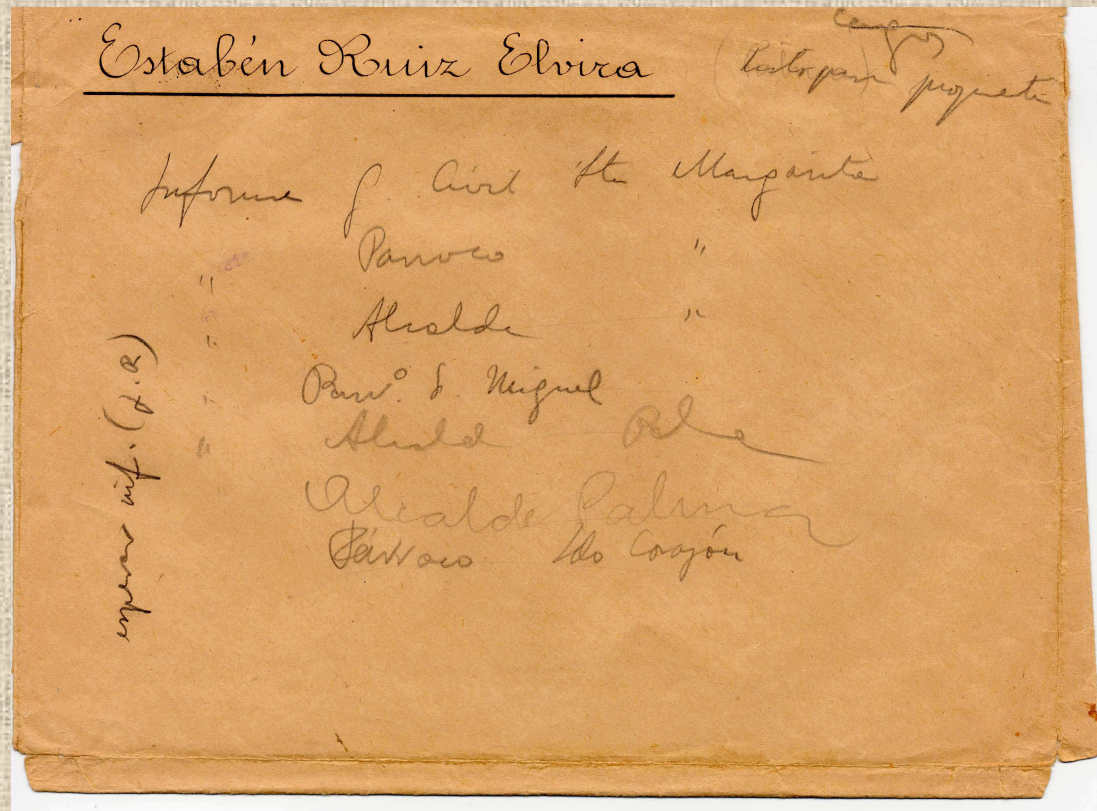 Estabén Ruiz Elvira
Informe G. Civil Sta Margarita
" Parroco "
" Alcalde "
" Parro. S. Miguel
" Alcald Palma
Alcalde Palma
Párroco Sdo Corazón
esperar inf.